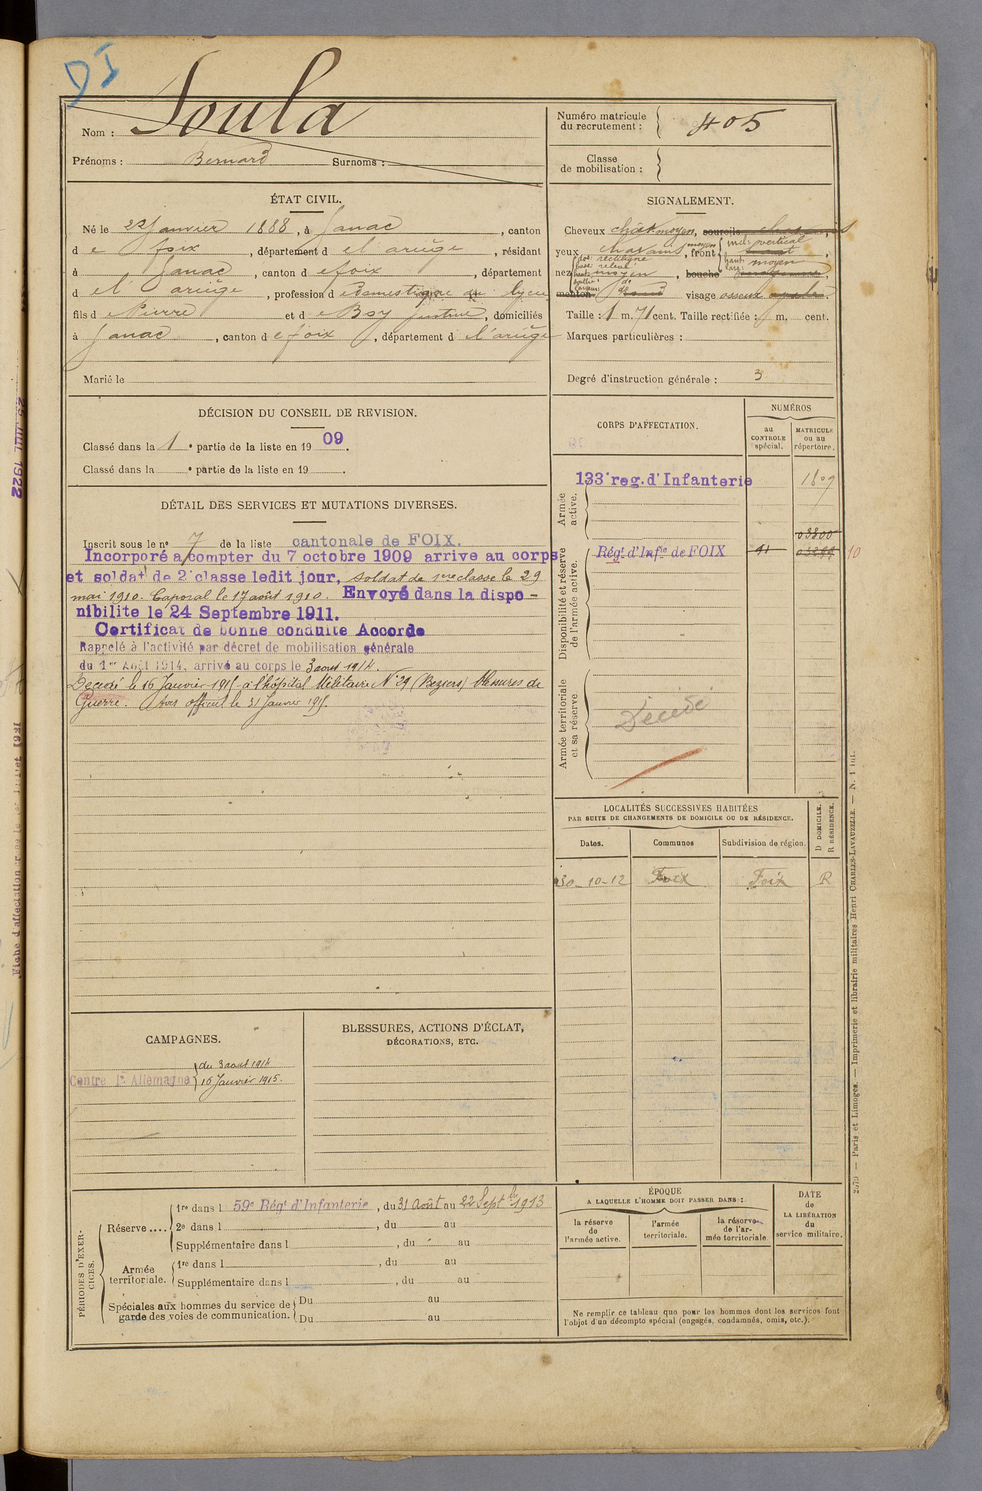 DI
Nom : Soula
Prénoms : Bernard Surnoms :
Numéro matricule
du recrutement : 405
Classe
de mobilisation :
ÉTAT CIVIL.
Né le 22 Janvier 1888, à Ganac, canton
d e foix, département d el ariège, résidant
à Ganac, canton d efoix, département
d el ariège, profession d edomestique au lycée
fils d ePierre et d eBoy Justine, domiciliés
à Ganac, canton d efoix, département d el'ariège
Marié le
SIGNALEMENT.
Cheveux chât moyen, sourcils
yeux, front moyen verticale
nez dos rectiligne
base relevé
haut moyen, bouche
haut moyen
larg
menton visage osseux ovale.
Taille : 1 m. 71 cent. Taille rectifiée : m. cent.
Marques particulières :
Degré d'instruction générale : 3
DÉCISION DU CONSEIL DE REVISION.
Classé dans la 1 e partie de la liste en 1909.
Classé dans la e partie de la liste en 19 .
CORPS D'AFFECTATION.
NUMÉROS
au
CONTROLE
spécial.
MATRICULE
ou au
répertoire.
Armée
active.
133e reg. d'Infanterie 1809
Disponibilité et réserve
de l'armée active.
03300
Régt d'Infie de FOIX 10
Armée territoriale
et sa réserve
Décédé
DÉTAIL DES SERVICES ET MUTATIONS DIVERSES.
Inscrit sous le no 7 de la liste cantonale de FOIX.
Incorporé a compter du 7 octobre 1909 arrive au corps
et soldat de 2e classe ledit jour, soldat de 1ere classe le 29
mai 1910. Caporal le 17 août 1910. Envoyé dans la dispo-
nibilite le 24 Septembre 1911.
Certificat de bonne conduite Accorde
Rappelé à l'activité par décret de mobilisation générale
du 1er Août 1914, arrivé au corps le 3 aout 1914.
Décédé le 16 Janvier 1915 à l'hôpital Militaire No 29 (Beziers) Blessures de
Guerre. Avis officiel le 31 Janvier 1915.
LOCALITÉS SUCCESSIVES HABITÉES
PAR SUITE DE CHANGEMENTS DE DOMICILE OU DE RÉSIDENCE.
Dates. Communes Subdivision de région. D DOMICILE. R RÉSIDENCE.
30-10-12 Foix Foix R
CAMPAGNES.
Contre l'Allemagne du 3 aout 1914
16 Janvier 1915.
BLESSURES, ACTIONS D'ÉCLAT,
DÉCORATIONS, ETC.
PÉRIODES D'EXER-
CICES.
Réserve .... 1re dans l 59e Régt d'Infanterie, du 31 Août au 22 Septbre 1913
2e dans l , du au
Supplémentaire dans l , du au
Armée
territoriale. 1re dans l , du au
Supplémentaire dans l , du au
Spéciales aux hommes du service de
garde des voies de communication. Du au
Du au
ÉPOQUE
A LAQUELLE L'HOMME DOIT PASSER DANS :
la réserve
de
l'armée active.
l'armée
territoriale.
la réserve
de l'ar-
mée territoriale
DATE
de
LA LIBÉRATION
du
service militaire.
Ne remplir ce tableau que pour les hommes dont les services font
l'objet d'un décompte spécial (engagés, condamnés, omis, etc.).
Paris et Limoges. — Imprimerie et librairie militaires Henri CHARLES-LAVAUZELLE. — N. 1 bis.